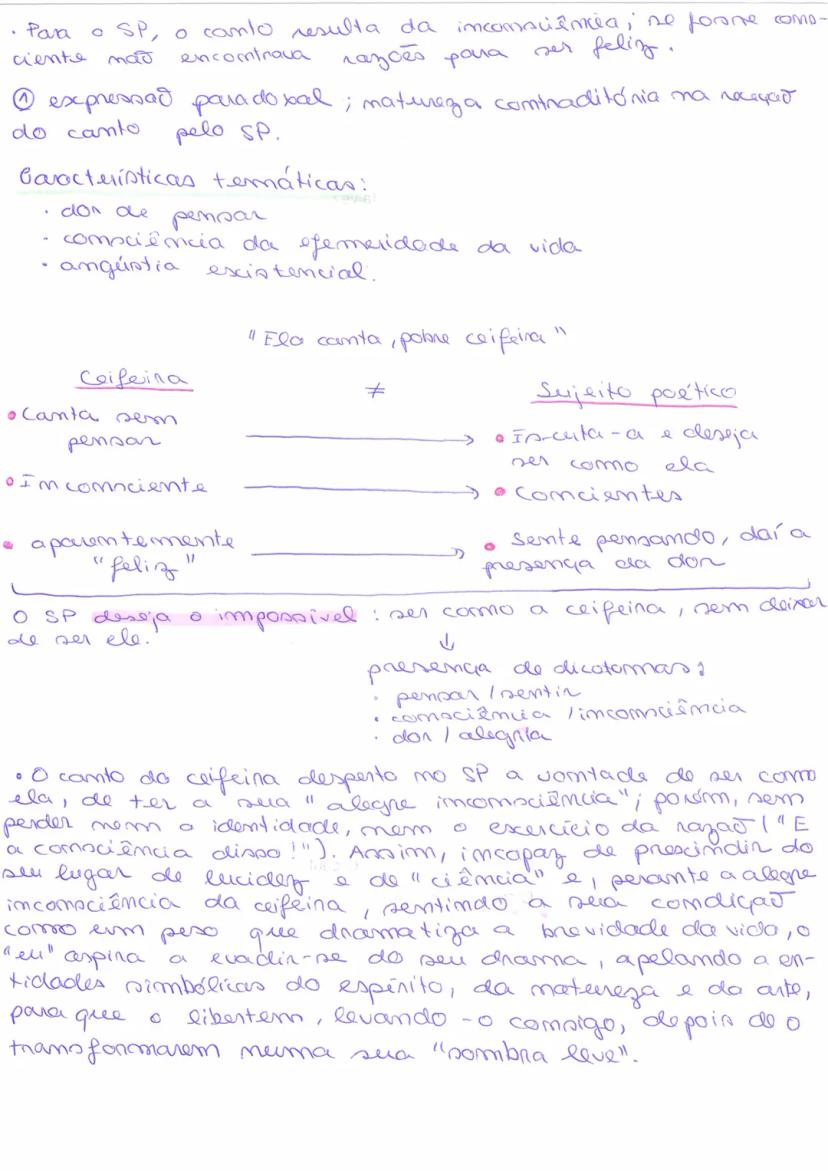 · Para o SP, o canto resulta da inconsciência; se fosse cons-
ciente não encontrava razões para ser feliz.
① expressão paradoxal; natureza contraditória na receção
do canto pelo SP.
Características temáticas:
· dor de pensar
· consciência da efemeridade da vida
· angústia existencial.
"Ela canta, pobre ceifeira"
Ceifeira ≠ Sujeito poético
• Canta sem
pensar → • Escuta-a e deseja
ser como ela
• Inconsciente → • Concientes
• aparentemente
"feliz" → • Sente pensando, daí a
presença da dor
O SP deseja o impossível: ser como a ceifeira, sem deixar
de ser ele.
↓
presença de dicotomias:
· pensar/sentir
· consciência/inconsciência
· dor/alegria
• O canto da ceifeira desperta no SP a vontade de ser como
ela, de ter a sua "alegre inconsciência"; porém, sem
perder nem a identidade, nem o exercício da razão ("E
a consciência disso!"). Assim, incapaz de prescindir do
seu lugar de lucidez e de "ciência" e, perante a alegre
inconsciência da ceifeira, sentindo a sua condição
como um peso que dramatiza a brevidade da vida, o
"eu" aspira a evadir-se do seu drama, apelando a en-
tidades simbólicas do espírito, da natureza e da arte,
para que o libertem, levando-o consigo, depois de o
transformarem numa sua "sombra leve".